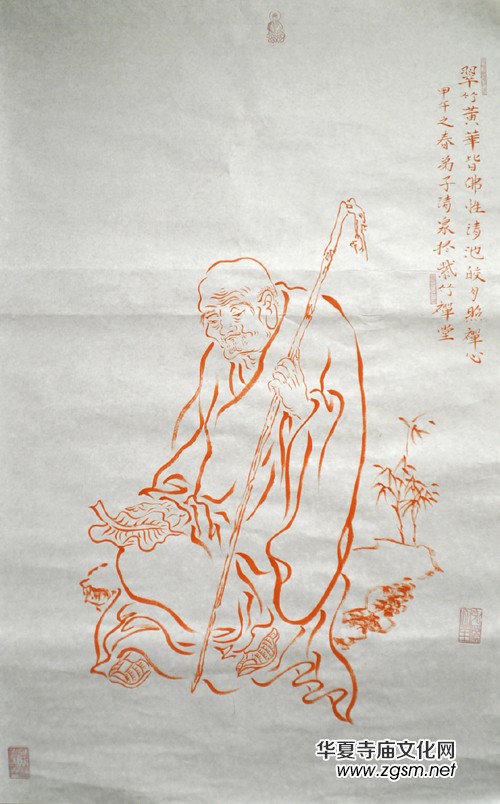 翠竹黄華皆佛性清池皎月照禅心
甲午之春弟子清泉於紫竹禅堂
华夏寺庙文化网
www.zgsm.net